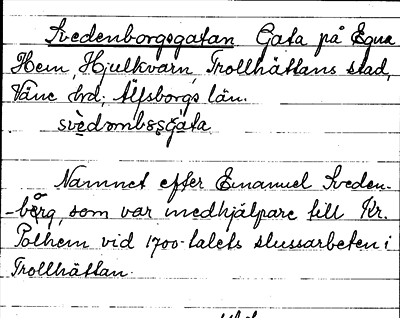 Svedenborgsgatan Gata på Egna
Hem, Hjulkvarn, Trollhättans stad,
Väne hd; Älfsborgs län.
Namnet efter Emanuel Sveden-
-borg, som var medhjälpare till Kr.
Polhem vid 1700-talets slussarbeten i
Trollhättan.